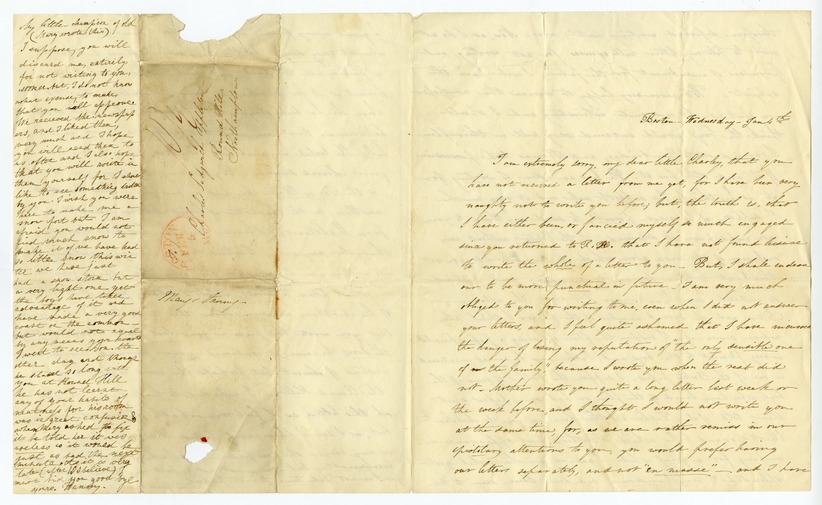 My little
(Mary wrote this)
I suppose, you will
discard me, entirely
for not writing to you,
sooner but, I do not know
what excuse, to make,
that you will approve
We recieved the newspap
ers, and I liked them,
very much and I hope
you will send them to
us often and I also hope
that you will write in
them yourself for I should
like to see something
by you. I wish you were
here to make me a
snow fort but I am
afraid you would not
find much snow to
make it of we have had
so little snow this win
ter we have just
had a snow storm but
a very light one yet
the boys have taken
advantage of it and
have made a very good
coast on the common
but would not equal
by any means your
I went to see
other day and though
he staid so long with
you at Round Hill
he has not learnt
any of your habits of
neatness for his room
was in great confusion &
when Mary asked to fix
it he told her it was
useless as it would be
just as bad the next
minute
I
must bid you good bye
yours
Charles
Round Hill
Northampton
Mary & Fanny
Boston - Wednesday - Jan 4th
I am extremely sorry, my dear little Charley, that you
have not received a letter from me yet, for I have been very
naughty not to write you before; but, the truth is, that
I have either been, or fancied myself so much engaged
since you returned to R. H. that I have not found
to write the whole of a letter to you - But, I shall endeav
our to be more punctual in future. I am very much
obliged to you for writing to me, even when I did not answer
your letters and I feel quite ashamed that I have incurred
the danger of losing my reputation of the only sensible one
of the family because I wrote you when the rest did
not - Mother wrote you quite a long letter last week or
the week before, and I thought I would not write you
at the same time for, as we are rather remiss in our
epistolary attentions to you, you would prefer having
our letters separately, and not "en masse" -, and I have